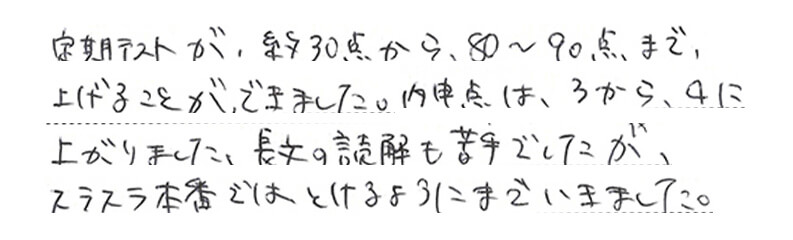 定期テストが、約30点から、80〜90点、まで、
上げることが、できました。内申点は、3から、4に
上がりました、長文の読解も苦手でしたが、
スラスラ本番では、とけるようにまでいきました。